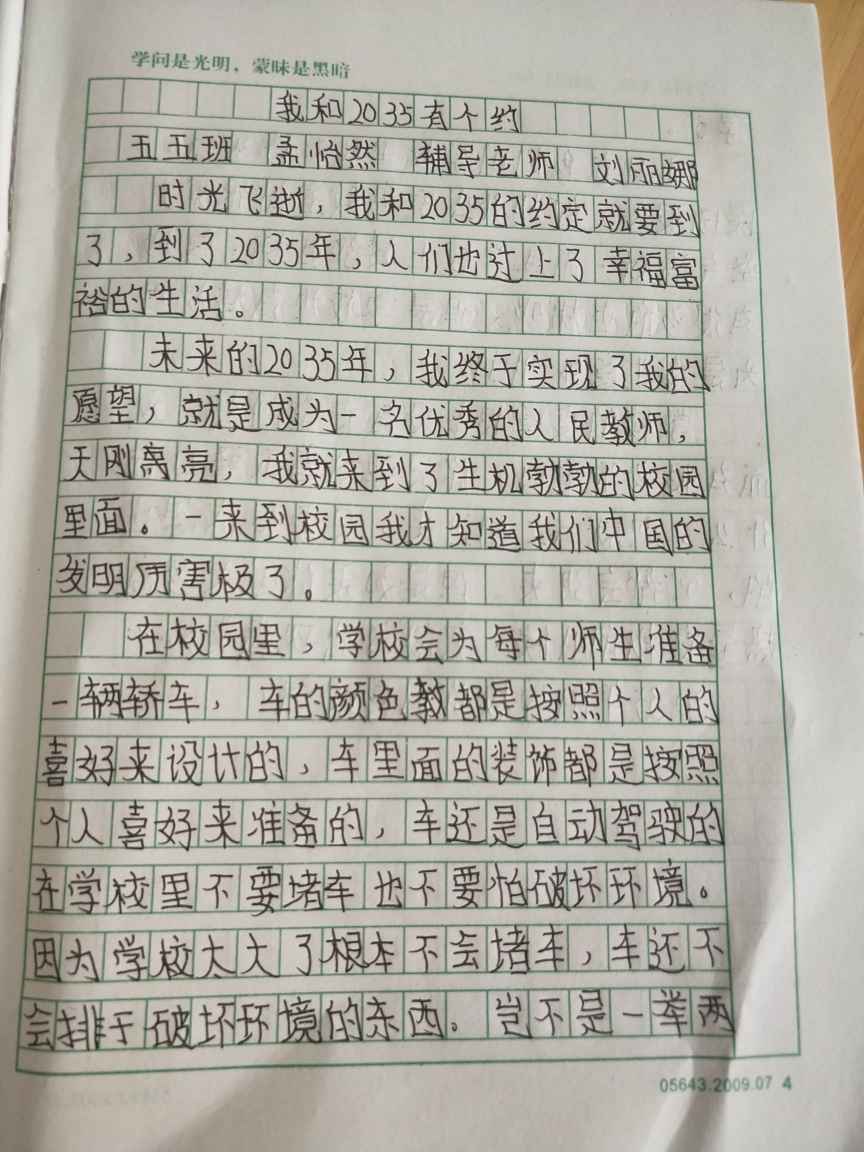 学问是光明，蒙昧是黑暗
我和2035有个约
五五班 孟怡然 辅导老师 刘丽娜
时光飞逝，我和2035的约定就要到
了，到了2035年，人们也过上了幸福富
裕的生活。
未来的2035年，我终于实现了我的
愿望，就是成为一名优秀的人民教师，
天刚亮，我就来到了生机勃勃的校园
里面。一来到校园我才知道我们中国的
发明厉害极了。
在校园里，学校会为每个师生准备
一辆轿车，车的颜色教都是按照个人的
喜好来设计的，车里面的装饰都是按照
个人喜好来准备的，车还是自动驾驶的
在学校里不要堵车也不要怕破坏环境。
因为学校太大了根本不会堵车，车还不
会排于破坏环境的东西。岂不是一举两
05643.2009.07 4